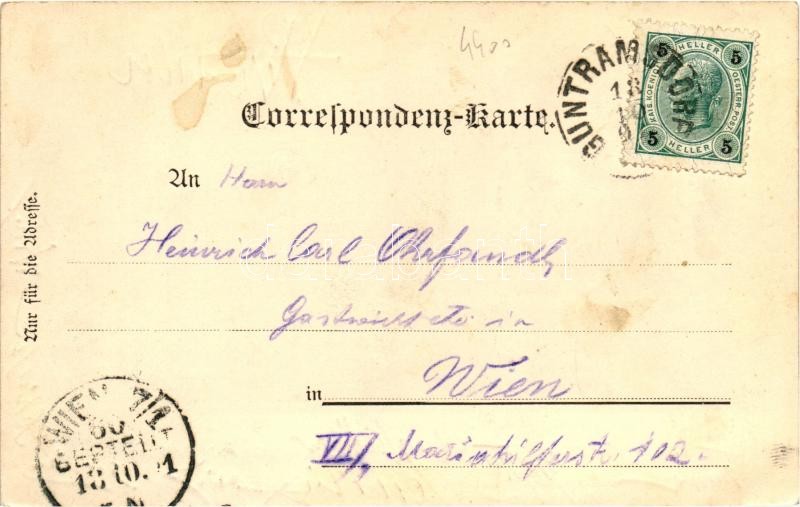 4400
GUNTRAMSDORF
18
5 HELLER 5
KAIS. KOENIGL. OESTERR. POST.
5 HELLER 5
Correspondenz-Karte.
An Herrn
Heinrich Carl
Gastwirth etc in
in Wien
VII/1 Mariahilferstr. 102.
Nur für die Adresse.
WIEN 7/1
60
BESTELLT
18.10.